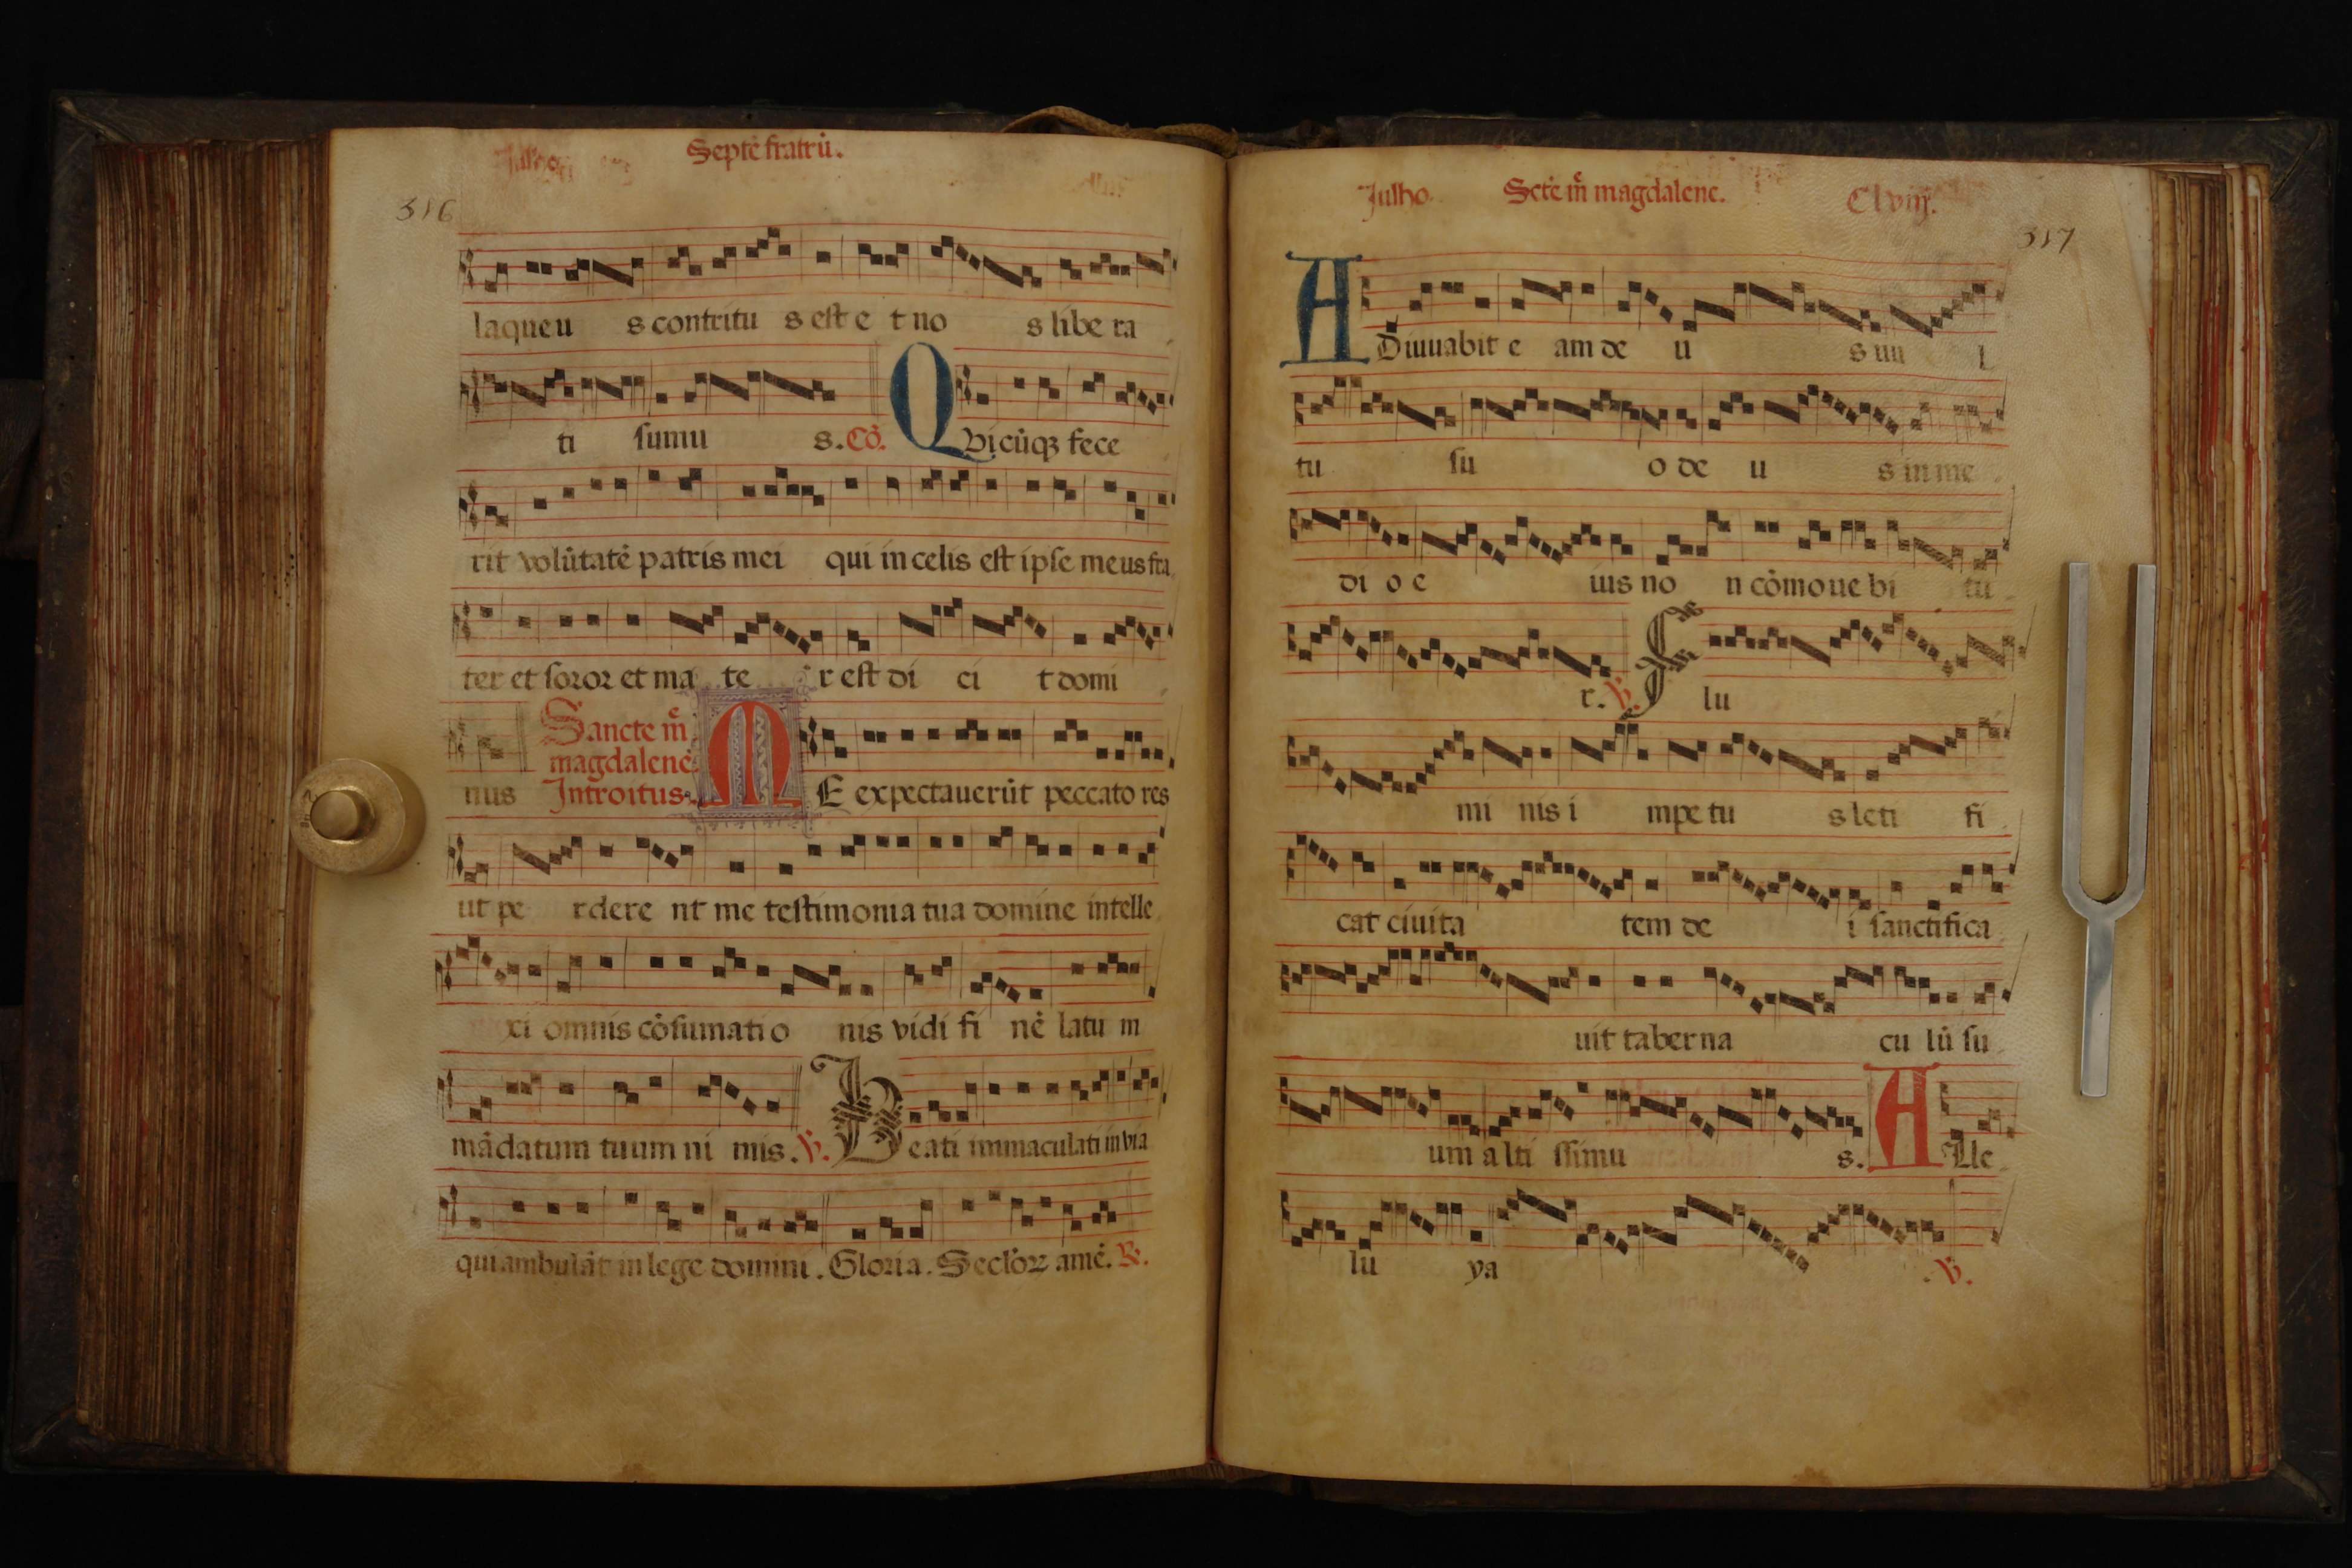 Septē fratrū.
316
laqueu s contritu s est e t no s libe ra
ti sumu s. Cō. Qvicūqꝫ fece
rit volūtatē patris mei qui in celis est ipse meus fra
ter et soror et ma te r est di ci t domi
nus Sancte mͤ magdalene Introitus. ME expectauerūt peccato res
ut pe rdere nt me testimonia tua domine intelle
xi omnis cōsumati o nis vidi fi nē latu m
mādatum tuum ni mis. ℣. Beati immaculati in via
qui ambulāt in lege domini. Gloria. Secloꝝ amē. ℟.
Julho. Scte mͤ magdalene. Clviij.
317
ADiuuabit e am de u s uu l
tu su o de u s in me
di o e ius no n cōmoue bi tu
r. ℣. F lu
mi nis i mpe tu s leti fi
cat ciuita tem de i sanctifica
uit taberna cu lū su
um alti ssimu s. ALle
lu ya . ℣.